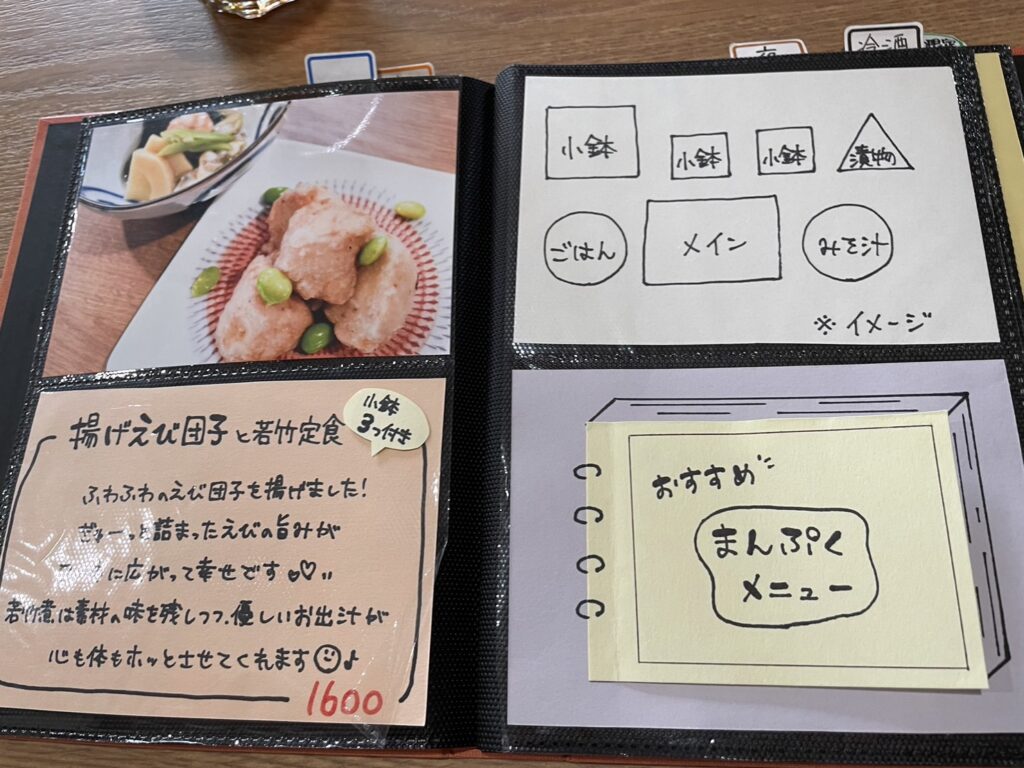 冷酒
揚げえび団子と若竹定食
小鉢
3つ付き
ふわふわのえび団子を揚げました!
ぎゅーっと詰まったえびの旨みが
に広がって幸せです♡
若竹煮は素材の味を残しつつ、優しいお出汁が
心も体もホッとさせてくれます☺♪
1600
小鉢
小鉢
小鉢
漬物
ごはん
メイン
みそ汁
※イメージ
おすすめ
まんぷく
メニュー